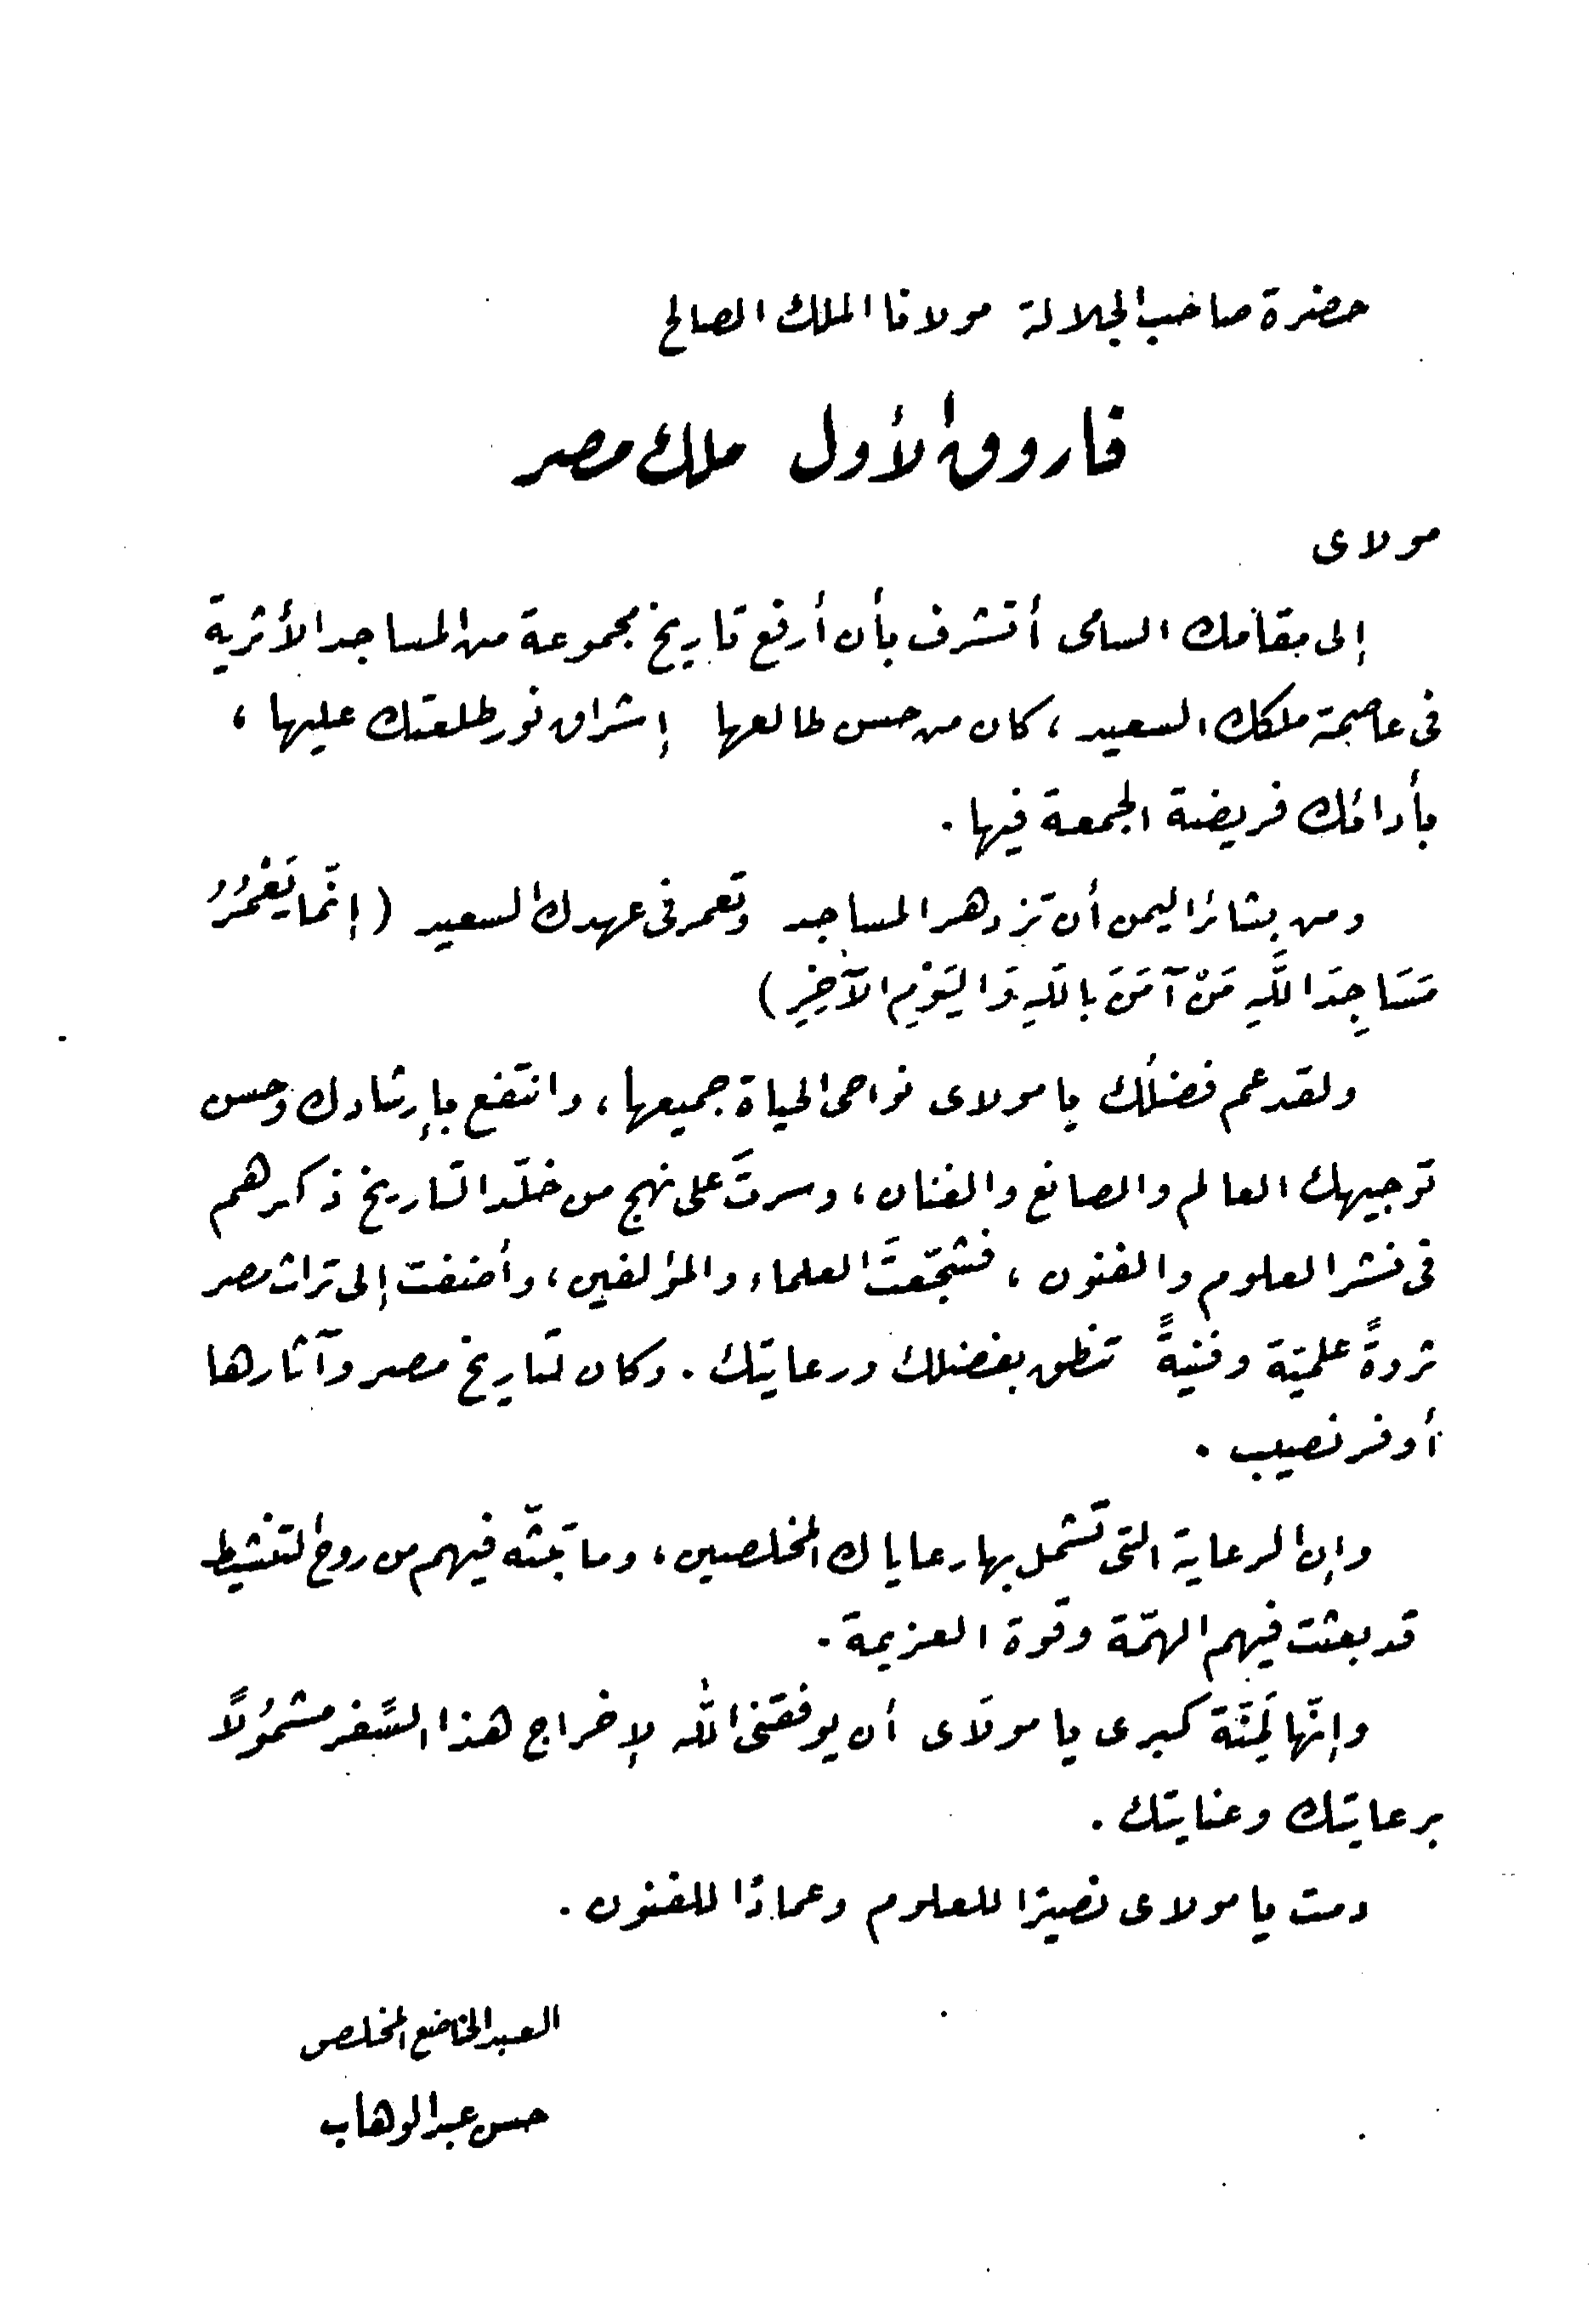 حضرة صاحب الجلالة مولانا الملك الصالح
فاروق الأول ملك مصر
مولاى
إلى مقامك السامى أتشرف بأن أرفع تاريخ مجموعة من المساجد الأثرية
فى عاصمة ملكك السعيد، كان من حسن طالعها إشراق نور طلعتك عليها،
بأدائك فريضة الجمعة فيها.
ومن بشائر اليمن أن تزدهر المساجد وتعمر فى عهدك السعيد (إنّما يَعْمُرُ
مَسَاجِدَ اللَّهِ مَنْ آمَنَ باللَّهِ وَاليَوْمِ الآخِرِ)
ولقد عم فضلك يا مولاى نواحى الحياة جميعها، وانتفع بإرشادك وحسن
توجيهك العالم والصانع والفنان، وسرتَ على نهج من خلّد التاريخ ذكرهم
فى نشر العلوم والفنون، فشجّعتَ العلماء والمؤلفين، وأضفت إلى تراث مصر
ثروةً علميّة وفنيةً تنطق بفضلك ورعايتك. وكان لتاريخ مصر وآثارها
أوفر نصيب.
وإن الرعاية التى تشمل بها رعاياك المخلصين، وما تبثّه فيهم من روح التنشيط
قد بعثت فيهم الهمّة وقوة العزيمة.
وإنّها لَمِنّة كبرى يا مولاَى أن يوفقنى الله لإخراج هذا السِّفر مشمُولاً
برعايتك وعنايتك.
دمت يا مولاى نصيرًا للعلوم وعمادًا للفنون.
العبد الخاضع المخلص
حسن عبد الوهاب